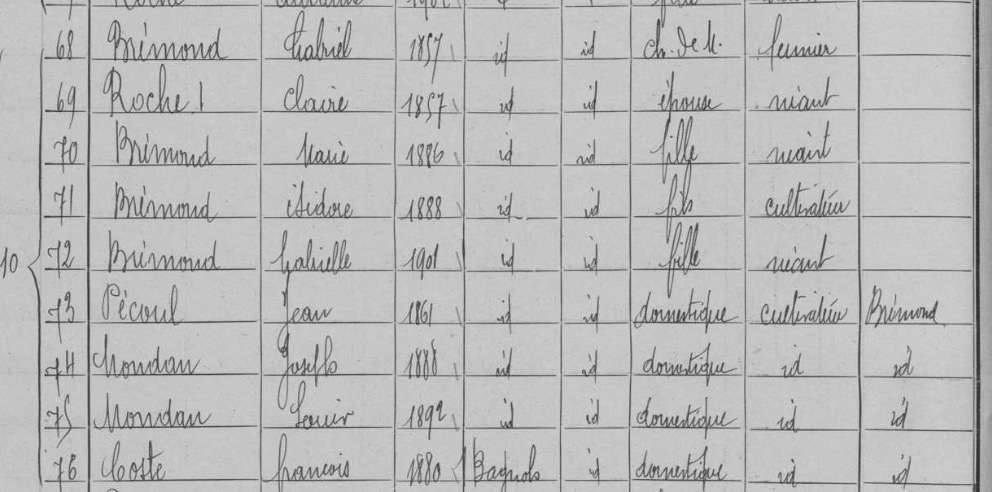 68 Brémond Gabriel 1857 id id ch. de M. fermier
69 Roche Claire 1857 id id épouse néant
70 Brémond Marie 1886 id id fille néant
71 Brémond isidore 1888 id id fils cultivateur
10 72 Brémond Gabrielle 1901 id id fille néant
73 Pécoul Jean 1861 id id domestique cultivateur Brémond
74 Mondan Joseph 1888 id id domestique id id
75 Mondan Louis 1892 id id domestique id id
76 Coste francois 1880 Bagnols id domestique id id